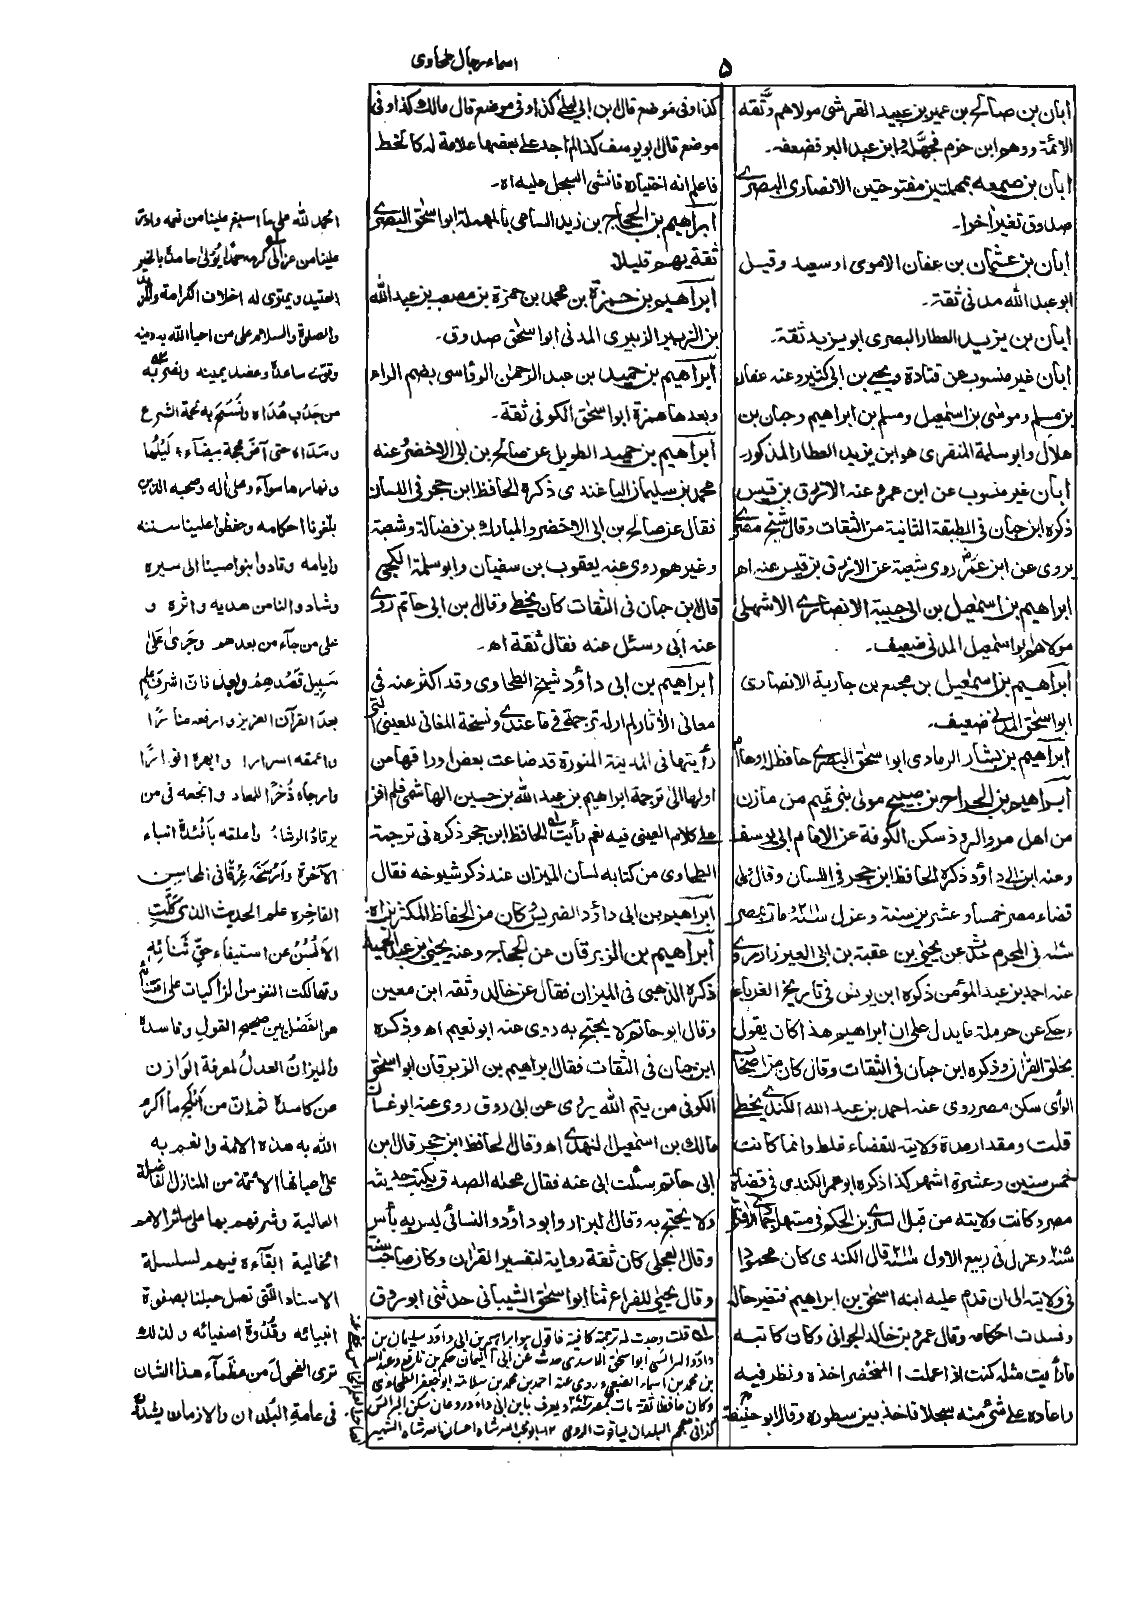 ۵
اسماء رجال طحاوی
ابان بن صالح بن عمير بن عبيد القرشى مولاهم وثّقه
الائمة ووهم ابن حزم فجهّله وابن عبد البر فضعفه۔
ابان بن صمعه بمهملتين مفتوحتين الانصارى البصرى
صدوق تغير اخرا۔
ابان بن عثمان بن عفان الاموى ابو سعيد وقيل
ابو عبد الله مدنى ثقة۔
ابان بن يزيد العطار البصرى ابو يزيد ثقة۔
ابان غير منسوب عن قتادة ويحيے بن ابى كثير وعنه عفان
بن مسلم وموسى بن اسمعيل ومسلم بن ابراهيم وحبان بن
هلال وابو سلمة المنقرى هو ابن يزيد العطار المذكور۔
ابان غير منسوب عن ابن عمرو عنه الازرق بن قيس
ذكره ابن حبان فى الطبقة الثانية من الثقات وقال شيخ
يروى عن ابن عمر روى شعبة عن الازرق بن قيس عنه اھ
ابراهيم بن اسمعيل بن ابى حبيبة الانصارى الاشهلى
مولاهم ابو اسمعيل المدنى ضعيف۔
ابراهيم بن اسمعيل بن مجمع بن جارية الانصارى
ابو اسحق المدنى ضعيف۔
ابراهيم بن بشار الرمادى ابو اسحق البصرى حافظ له اوهام
ابراهيم بن الجراح بن صبيح مولى بنى تميم من مازن
من اهل مرو الروذ سكن الكوفة عن الامام ابى يوسف
وعنه ابن ابى داؤد ذكره الحافظ ابن حجر فى اللسان وقال ولى
قضاء مصر خمسا وعشرين سنة وعزل سنة ۲۱۱ ومات بمصر
سنة فى المحرم حدث عن يحيى بن عقبة بن ابى العيزار روى
عنه احمد بن عبد المؤمن ذكره ابن يونس فى تاريخ الغرباء
وحكے عن حرملة ما يدل على ان ابراهيم هذا كان يقول
بخلق القران وذكره ابن حبان فى الثقات وقال كان من اصحاب
الرأى سكن مصر روى عنه احمد بن عبد الله الكندى يخطئ
قلت ومقدار مدة ولايته للقضاء غلط وانما كانت
خمس سنين وعشرة اشهر كذا ذكره ابو عمر الكندى فى قضاة
مصر وكانت ولايته من قبل السرى بن الحكم فى مستهل جمادى الاولى
سنة ۲۰۵ وعزل فى ربيع الاول سنة ۲۱۱ قال الكندى كان محمودا
فى ولايته الى ان قدم عليه ابنه اسحق بن ابراهيم فتغير حاله
وفسدت احكامه وقال عمرو بن خالد الحرانى وكان كاتبه
ما رأيت مثله كنت اذا عملت المحضر اخذه ونظر فيه
واعاده على شئ منه سجلا فاخذ بين سطوره وقال ابو حنيفة
كذا وفى موضع قال ابن ابى ليلى كذا وفى موضع قال مالك كذا وفى
موضع قال ابو يوسف كذا ثم اجد على بعضها علامة له كالخط
فاعلم انه اختياره فانشئ السجل عليه اھ۔
ابراهيم بن الحجاج بن زيد السامى بالمهملة ابو اسحق البصرى
ثقة يهم قليلا
ابراهيم بن حمزة بن محمد بن حمزة بن مصعب بن عبد الله
بن الزبير الزبيرى المدنى ابو اسحق صدوق۔
ابراهيم بن حميد بن عبد الرحمن الرؤاسى بضم الراء
وبعدها همزة ابو اسحق الكوفى ثقة۔
ابراهيم بن حميد الطويل عن صالح بن ابى الاخضر وعنه
محمد بن سليمان الباغندى ذكره الحافظ ابن حجر فى اللسان
فقال عن صالح بن ابى الاخضر والمبارك بن فضالة وشعبة
وغيرهم روى عنه يعقوب بن سفيان وابو سلمة الكجى
قال ابن حبان فى الثقات كان يخطئ وقال ابن ابى حاتم روى
عنه ابى وسئل عنه فقال ثقة اھ۔
ابراهيم بن ابى داؤد شيخ الطحاوى وقد اكثر عنه فى
معانى الآثار لم ار له ترجمة فى ما عندى ونسخة المغانى للعينى التى
رأيتها فى المدينة المنورة قد ضاعت بعض اوراقها من
اولها الى ترجمة ابراهيم بن عبد الله بن حسين الهاشمى فلم افز
على كلام العينى فيه نعم رأيت الحافظ ابن حجر ذكره فى ترجمة
الطحاوى من كتابه لسان الميزان عند ذكر شيوخه فقال
ابراهيم بن ابى داؤد الضرير كان من الحفاظ المكثرين اھ
ابراهيم بن الزبرقان عن الحجاج وعنه يحيى بن عبد الحميد
ذكره الذهبى فى الميزان فقال عن خالد وثقه ابن معين
وقال ابو حاتم لا يحتج به روى عنه ابو نعيم اھ وذكره
ابن حبان فى الثقات فقال ابراهيم بن الزبرقان ابو اسحق
الكوفى من يتم الله يروى عن ابى روق روى عنه ابو غسان
مالك بن اسمعيل النهدى اھ وقال الحافظ ابن حجر قال ابن
ابى حاتم سئلت ابى عنه فقال محله الصدق يكتب حديثه
ولا يحتج به وقال البزار وابو داؤد والنسائى ليس به بأس
وقال العجلى كان ثقة رواية لتفسير القران وكان صاحب سنة
وقال يحيى للفراء ثنا ابو اسحق الشيبانى حدثنى ابو روق
قلت وجدت له ترجمة كافية فاقول هو ابراهيم بن ابى داؤد سليمان بن
داؤد البرلسى ابو اسحق الاسدى حدث عن ابى اليمان حكم بن نافع وعبد الله
بن محمد بن اسماء الضبعى وروى عنه احمد بن محمد بن سلامة ابو جعفر الطحاوى
وكان حافظا ثقة مات بمصر ويعرف بابن ابى داؤد وكان سكن البرلس
كذا فى معجم البلدان لياقوت الرومى ۱۲ ابو تراب شاه احسان الله شاه السندى
الحمد لله على ما اسبغ علينا من نعمه وادر
علينا من عزالى كرمه حمدا يؤتى حامده بالخير
العتيد ويمترى له اخلاف الكرامة والمزيد
والصلوة والسلام على من احيا الله به دينه
وقوّى ساعده وعضد يمينه ونصر به
من جَدُب هُداه ونُسَتم به نعمة الشرع
ومداه حتى آض محجة بيضاء ليلها
ونهارها سواء وعلى اٰله وصحبه الذين
بلّغونا احكامه وحفظوا علينا سننه
وايامه وقادوا بنواصينا الى سبره
وشادوا لنا من هديه واثره و
على من جاء من بعدهم وجرى على
سبيل قصدهم وبعد فان اشرف علم
بعد القرآن العزيز وارفعه منارًا
واعمقه اسرارا وابهره انوارًا
وارجاه ذُخرًا للمعاد وانجعه فى من
يرتاد الرشاد واعلقه بافئدة ابناء
الآخرة وارسخه عرقا فى المحاسن
الفاخرة علم الحديث الذى كلّت
الالسُن عن استيفاء حقّ ثنائه
وتهالكت النفوس الزاكيات على اقتنائه
هو الفصل بين صحيح القول وفاسده
والميزان العدل لمعرفة الوازن
من كاسده ثم ان من افلج ما اكرم
الله به هذه الامة وانعم به
على اعيانها الائمة من المنازل الفاضلة
العالية وشرفهم بها على سائر الامم
الخالية ابقاءه فيهم لسلسلة
الاسناد التى تصل حبلنا بصفوة
انبيائه وقدوة اصفيائه ولذلك
ترى الفحول من عظماء هذا الشان
فى عامة البلدان والازمان يشدّون